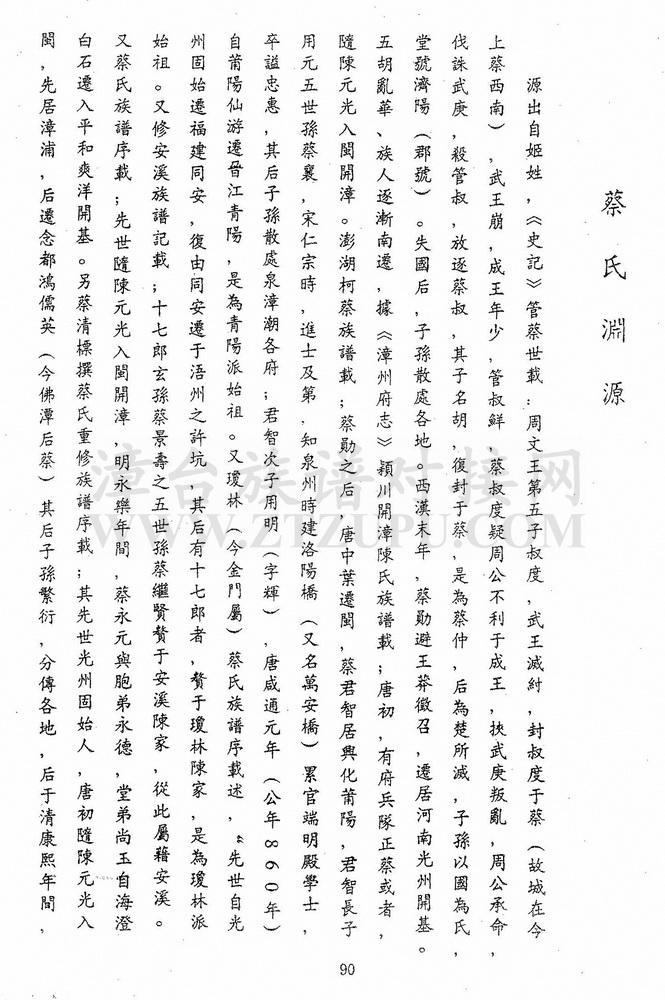 蔡氏淵源
源出自姬姓，《史記》管蔡世載：周文王第五子叔度，武王滅紂，封叔度于蔡（故城在今
上蔡西南），武王崩，成王年少，管叔鮮，蔡叔度疑周公不利于成王，挾武庚叛亂，周公承命，
伐誅武庚，殺管叔，放逐蔡叔，其子名胡，復封于蔡，是為蔡仲，后為楚所滅，子孫以國為氏，
堂號濟陽（郡號）。失國后，子孫散處各地。西漢末年，蔡勛避王莽徵召，遷居河南光州開基。
五胡亂華、族人逐漸南遷，據《漳州府志》潁川開漳陳氏族譜載；唐初，有府兵隊正蔡或者，
隨陳元光入閩開漳。澎湖柯蔡族譜載；蔡勛之后，唐中葉遷閩，蔡君智居興化莆陽，君智長子
用元五世孫蔡襄，宋仁宗時，進士及第，知泉州時建洛陽橋（又名萬安橋）累官端明殿學士，
卒謚忠惠，其后子孫散處泉漳潮各府；君智次子用明（字輝），唐咸通元年（公年860年）
自莆陽仙游遷晉江青陽，是為青陽派始祖。又瓊林（今金門屬）蔡氏族譜序載述，“先世自光
州固始遷福建同安，復由同安遷于浯州之許坑，其后有十七郎者，贅于瓊林陳家，是為瓊林派
始祖。又修安溪族譜記載；十七郎玄孫蔡景壽之五世孫蔡繼賢贅于安溪陳家，從此屬籍安溪。
又蔡氏族譜序載；先世隨陳元光入閩開漳，明永樂年間，蔡永元與胞弟永德，堂弟尚玉自海澄
白石遷入平和爽洋開基。另蔡清標撰蔡氏重修族譜序載；其先世光州固始人，唐初隨陳元光入
閩，先居漳浦，后遷念都鴻儒英（今佛潭后蔡）其后子孫繁衍，分傳各地，后于清康熙年間，
90
漳台族谱对接网
WWW.ZTZUPU.COM